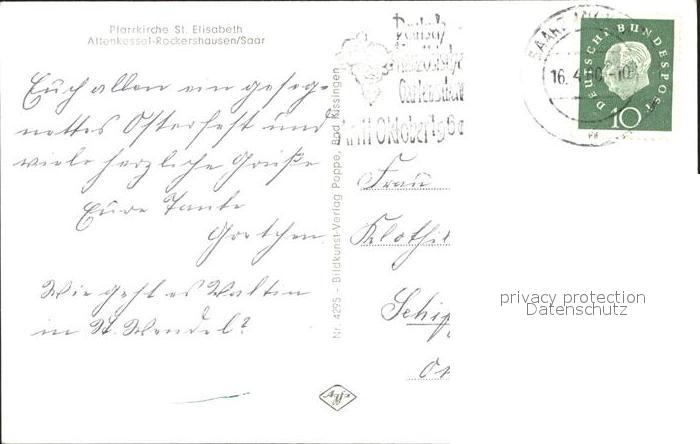 Pfarrkirche St. Elisabeth
Altenkessel-Rockershausen/Saar
Euch allen ein geseg-
netes Osterfest und
viele herzliche Grüße
Eure Tante
Gretchen
Wie geht es Walter
in St. Wendel?
Nr. 4295 - Bildkunst-Verlag Poppe, Bad Kissingen
Agfa
Deutsch
Französische
Gartenschau
Oktober 1960
SAAR
16. 4. 60
DEUTSCHE BUNDESPOST
10
Frau
Klothil
Schif
privacy protection
Datenschutz